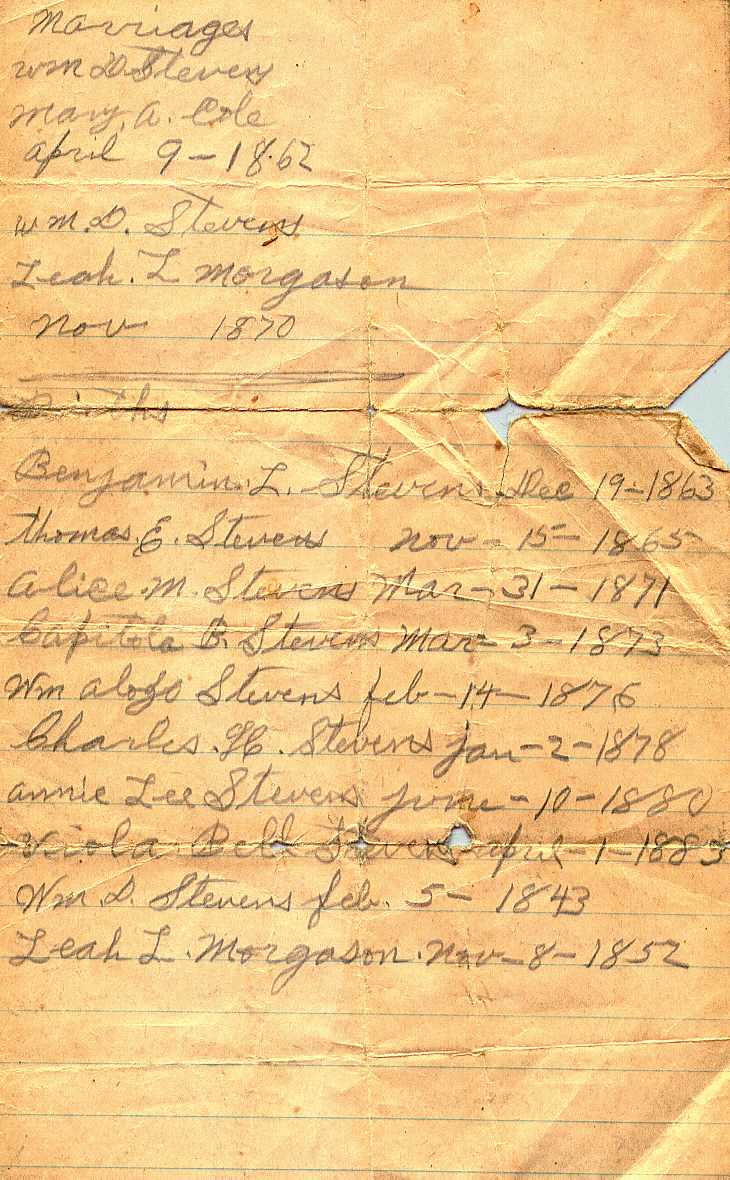 Marriages
Wm D Stevens
Mary. A. Cole
April 9 - 1862
Wm. D. Stevens
Leah. L Morgason
Nov 1870
Births
Benjamin. L. Stevens Dec 19 - 1863
Thomas. E. Stevens Nov - 15 - 1865
Alice. M. Stevens Mar - 31 - 1871
Capitola B. Stevens Mar - 3 - 1873
Wm Alozo Stevens feb - 14 - 1876
Charles. H. Stevens jan - 2 - 1878
annie Lee Stevens june - 10 - 1880
Viola Bell Stevens april - 1 - 1883
Wm. D. Stevens feb. 5 - 1843
Leah L. Morgason. Nov - 8 - 1852